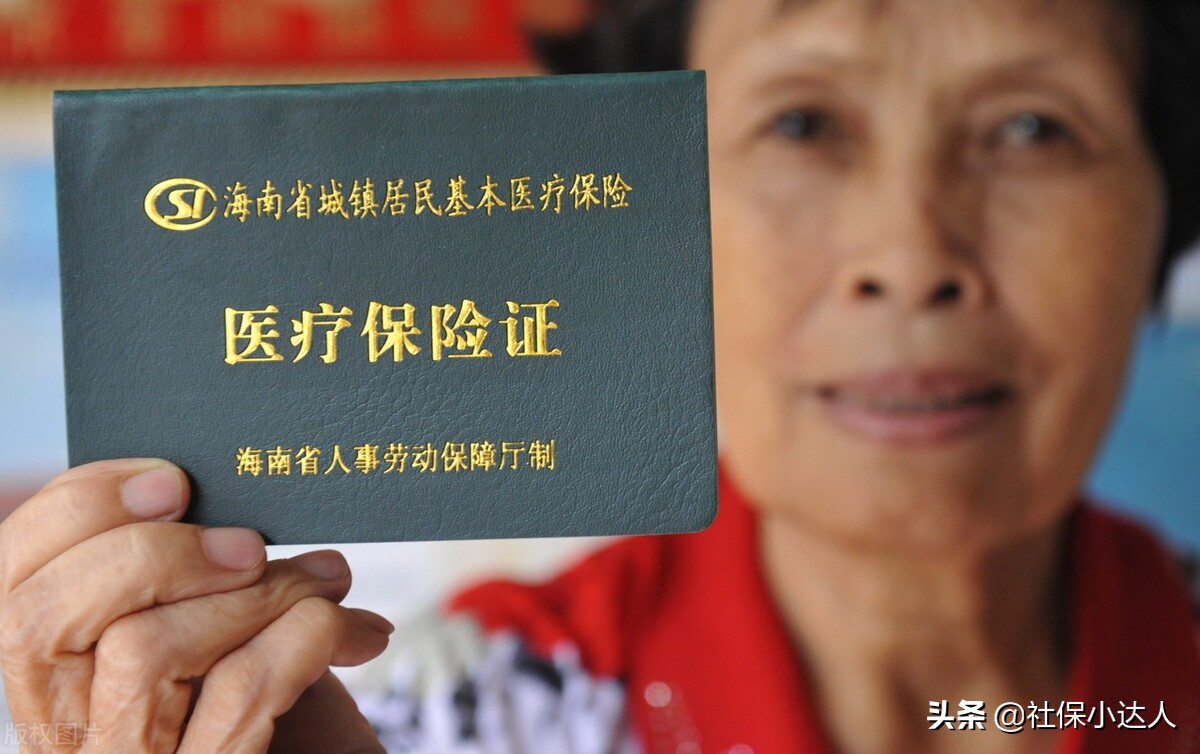 SI 海南省城镇居民基本医疗保险
医疗保险证
海南省人事劳动保障厅制
版权图片
头条 @社保小达人